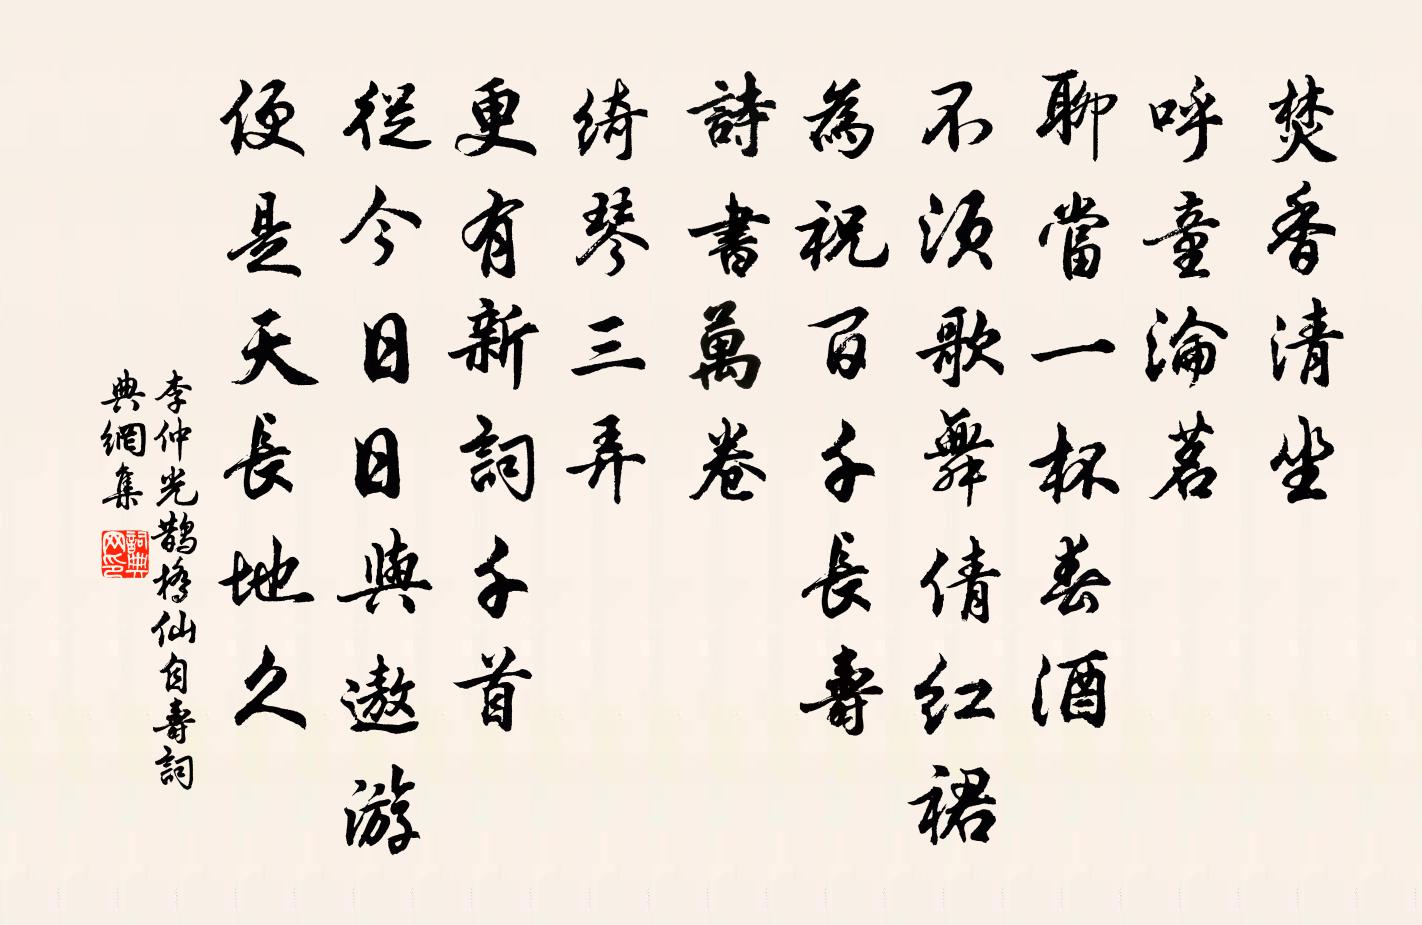 焚香清坐
呼童瀹茗
聊當一杯春酒
不須歌舞倩紅裙
為祝百千長壽
詩書萬卷
綺琴三弄
更有新詞千首
從今日日與遨游
便是天長地久
李仲光鵲橋仙自壽詞
典網集
詞典
网印